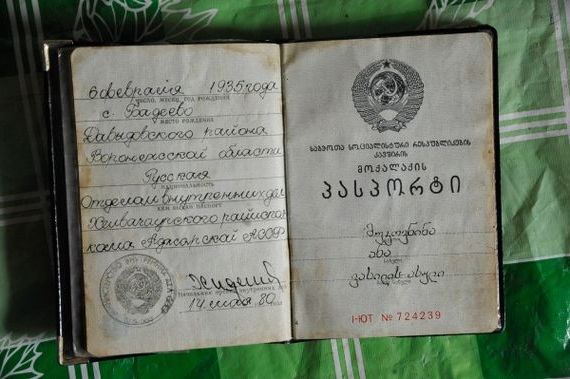 6 февраля 1935 года
число, месяц, год рождения
с. Бадеево
место рождения
Давыдовского района
Воронежской области
Русская
национальность
Отделом внутренних дел
кем выдан паспорт
Хелвачаурского райиспол
кома Аджарской АССР
14 мая 80
საბჭოთა სოციალისტური რესპუბლიკების
კავშირის
მოქალაქის
პასპორტი
ანა
ვასილის ასული
I-ЮТ № 724239